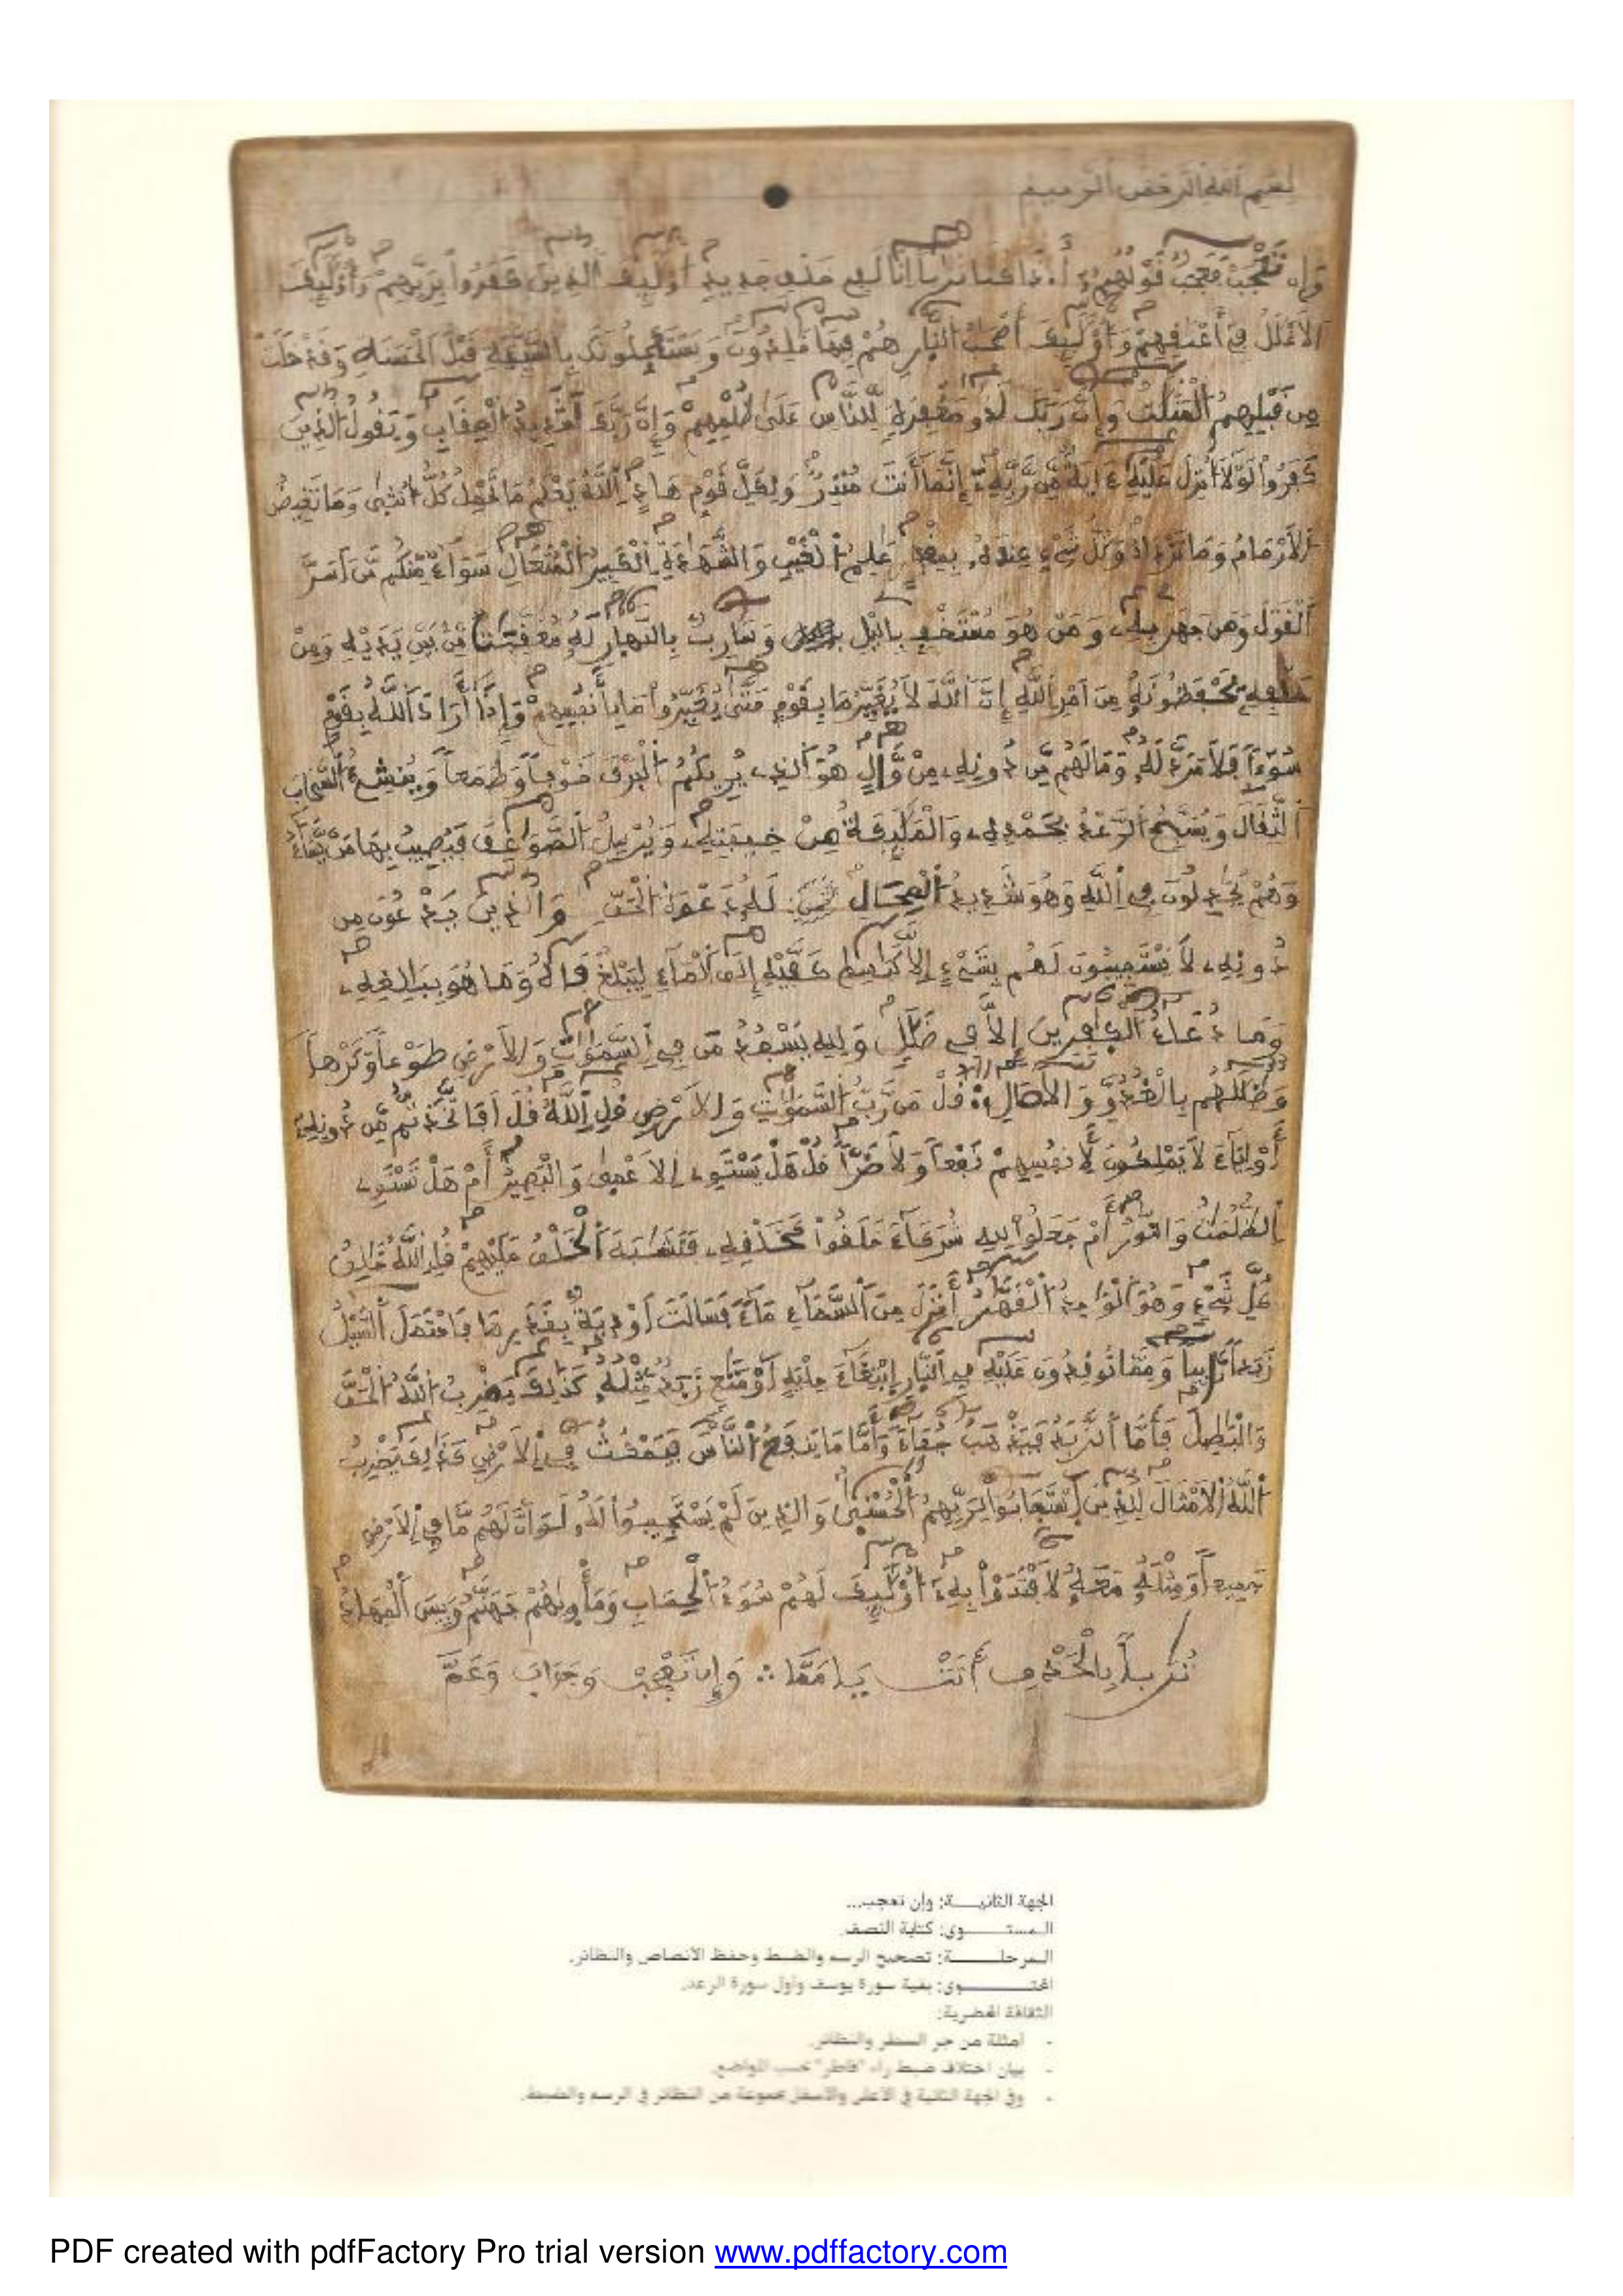 بسم الله الرحمن الرحيم
وإن تعجب فعجب قولهم أ.ذا كنا تربا انا لفي خلق جديد اوليك الذين كفروا بربهم وأوليك
الاغلل في أعنقهم وأوليك أصحب النار هم فيها خلدون ويستعجلونك بالسيئة قبل الحسنة وقد خلت
من قبلهم المثلت وإن ربك لذو مغفرة للناس على ظلمهم وإن ربك لشديد العقاب ويقول الذين
كفروا لولا أنزل عليه ءاية من ربه إنما أنت منذر ولكل قوم هاد الله يعلم ما تحمل كل أنثى وما تغيض
الارحام وما تزداد وكل شيء عنده بمقدر علم الغيب والشهدة الكبير المتعال سواء منكم من أسر
القول ومن جهر به ومن هو مستخف باليل وسارب بالنهار له معقبت من بين يديه ومن
خلفه يحفظونه من أمر الله إن الله لا يغير ما بقوم حتى يغيروا ما بأنفسهم وإذا أراد الله بقوم
سوءا فلا مرد له وما لهم من دونه من وال هو الذي يريكم البرق خوفا وطمعا وينشئ السحاب
الثقال ويسبح الرعد بحمده والمليكة من خيفته ويرسل الصواعق فيصيب بها من يشاء
وهم يجدلون في الله وهو شديد المحال له دعوة الحق والذين يدعون من
دونه لا يستجيبون لهم بشيء إلا كبسط كفيه إلى الماء ليبلغ فاه وما هو ببلغه
وما دعاء الكفرين إلا في ضلل ولله يسجد من في السموت والارض طوعا وكرها
وظللهم بالغدو والاصال قل من رب السموت والارض قل الله قل أفاتخذتم من دونه
أولياء لا يملكون لأنفسهم نفعا ولا ضرا قل هل يستوي الاعمى والبصير أم هل تستوي
الظلمت والنور أم جعلوا لله شركاء خلقوا كخلقه فتشبه الخلق عليهم قل الله خلق
كل شيء وهو الواحد القهر أنزل من السماء ماء فسالت أودية بقدرها فاحتمل السيل
زبدا رابيا ومما توقدون عليه في النار ابتغاء حلية أو متع زبد مثله كذلك يضرب الله الحق
والبطل فأما الزبد فيذهب جفاء وأما ما ينفع الناس فيمكث في الارض كذلك يضرب
الله الامثال للذين استجابوا لربهم الحسنى والذين لم يستجيبوا له لو أن لهم ما في الارض
جميعا ومثله معه لافتدوا به أوليك لهم سوء الحساب ومأويهم جهنم وبيس المهاد
وإن تعجب
الجهة الثانيـــة: وإن تعجب...
المستـــوى: كتابة النصف.
المرحلـــة: تصحيح الرسم والضبط وحفظ الأنصاص والنظائر.
المحتـــوى: بقية سورة يوسف وأول سورة الرعد.
الثقافة الحضرية:
- أمثلة من جر السطر والنظائر.
- بيان اختلاف ضبط راء "فاطر" حسب المواضع.
- وفي الجهة الثانية في الأعلى والأسفل مجموعة من النظائر في الرسم والضبط.
PDF created with pdfFactory Pro trial version www.pdffactory.com